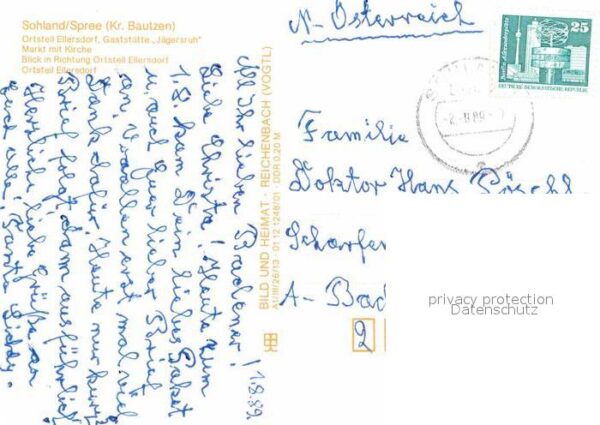 Sohland/Spree (Kr. Bautzen)
Ortsteil Ellersdorf, Gaststätte „Jägersruh"
Markt mit Kirche
Blick in Richtung Ortsteil Ellersdorf
Ortsteil Ellersdorf
All Ihr lieben Badener!
1.8.89.
Liebe Christa! Heute zum
1.8. kam Dein liebes Paket
u. auch Euer lieber Brief
an. Vor allem erst mal viel
Dank dafür. Heute nur kurz,
Brief folgt dann ausführlich.
Herzliche liebe Grüße an
Euch alle! Tante
BILD UND HEIMAT · REICHENBACH (VOGTL)
A1/III/26/13 · 01 12 1248/01 · DDR 0,20 M
N-Österreich
25
DEUTSCHE DEMOKRATISCHE REPUBLIK
Familie
Doktor Hans
A-Bad
2
privacy protection
Datenschutz